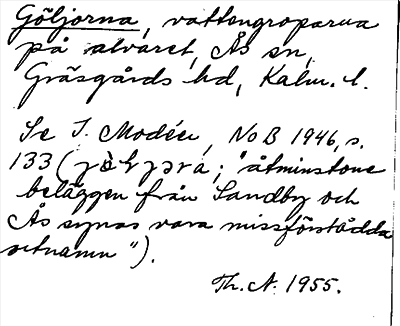 Göljorna, vattengroparna
på alvaret, Ås sn,
Gräsgårds hd, Kalm. l.
Se I. Modéer, NoB 1946, s.
133 ( ; "åtminstone
beläggen från Sandby och
Ås synas vara missförstådda
ortnamn").
Th. N. 1955.